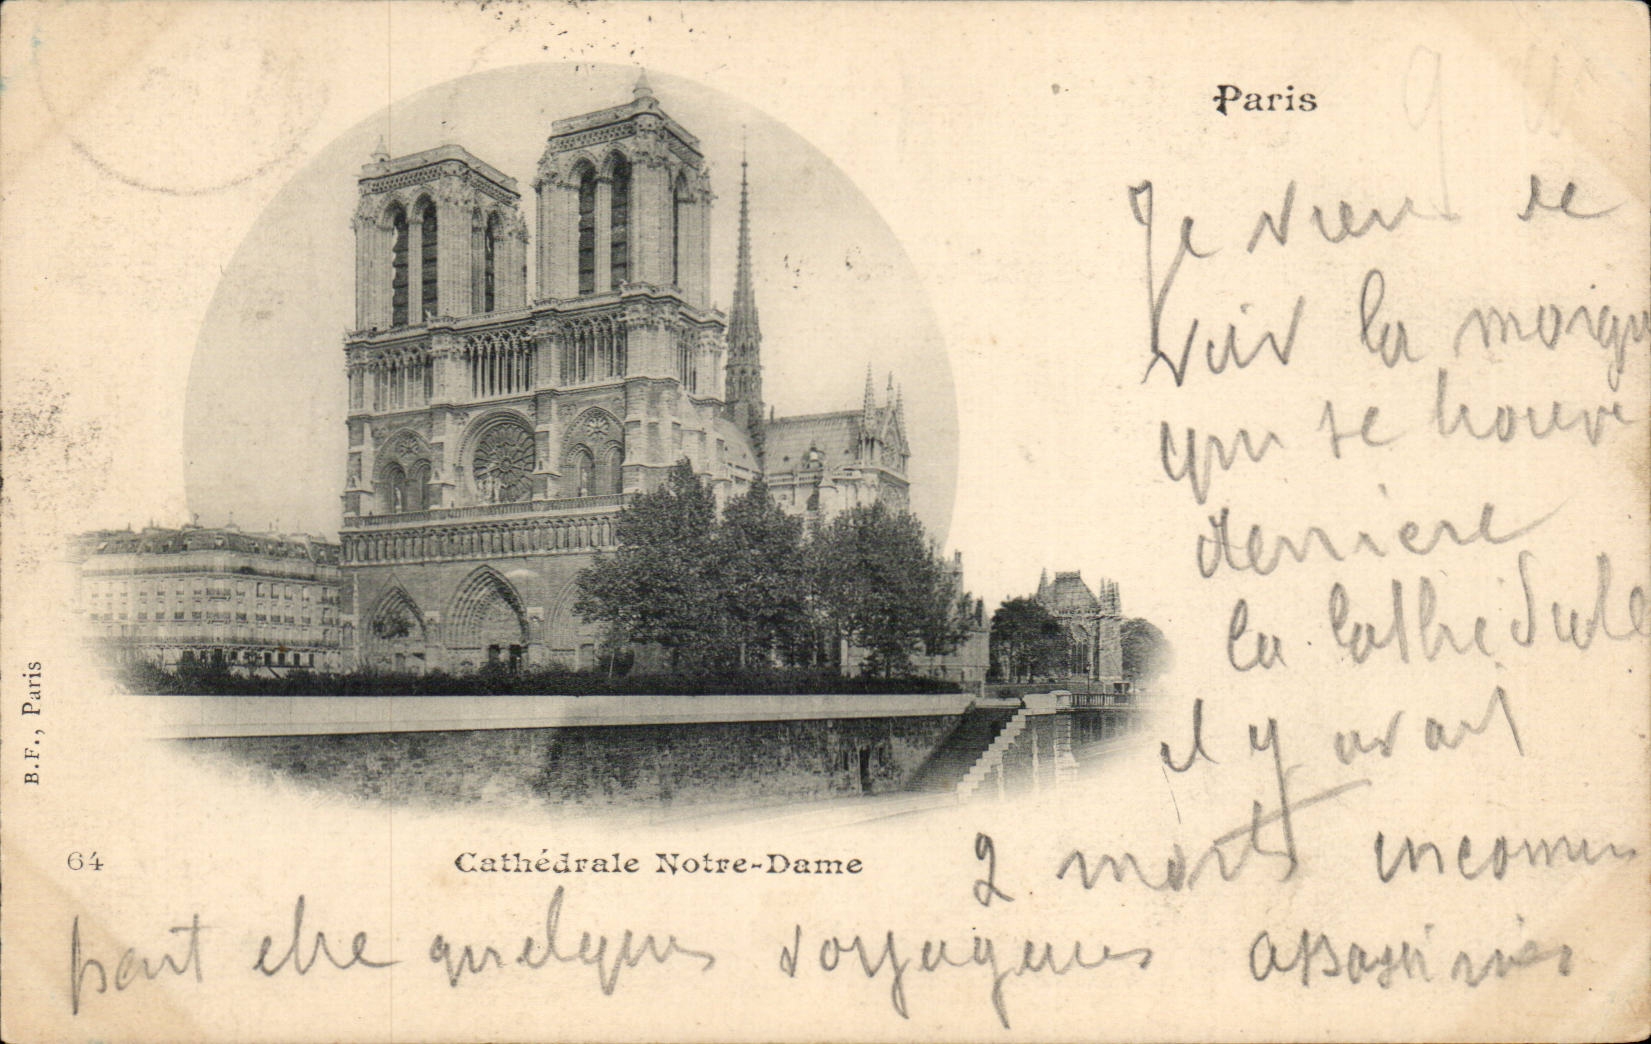 Paris
Je viens de
voir la morgue
qui se trouve
derriere
la Cathédrale
il y avait
2 morts inconnus
peut etre quelques voyageurs assassinés
64
Cathédrale Notre-Dame
B.F., Paris